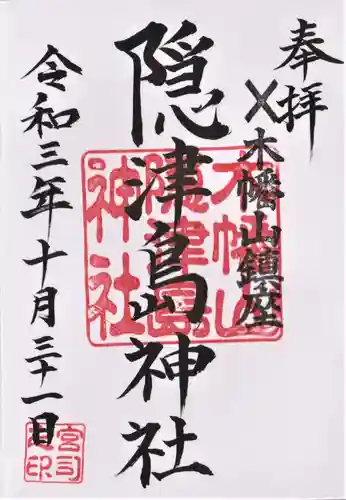 奉拝
木幡山鎮座
隠津島神社
令和三年十月三十一日
木幡山
隠津島
神社
宮司
之印